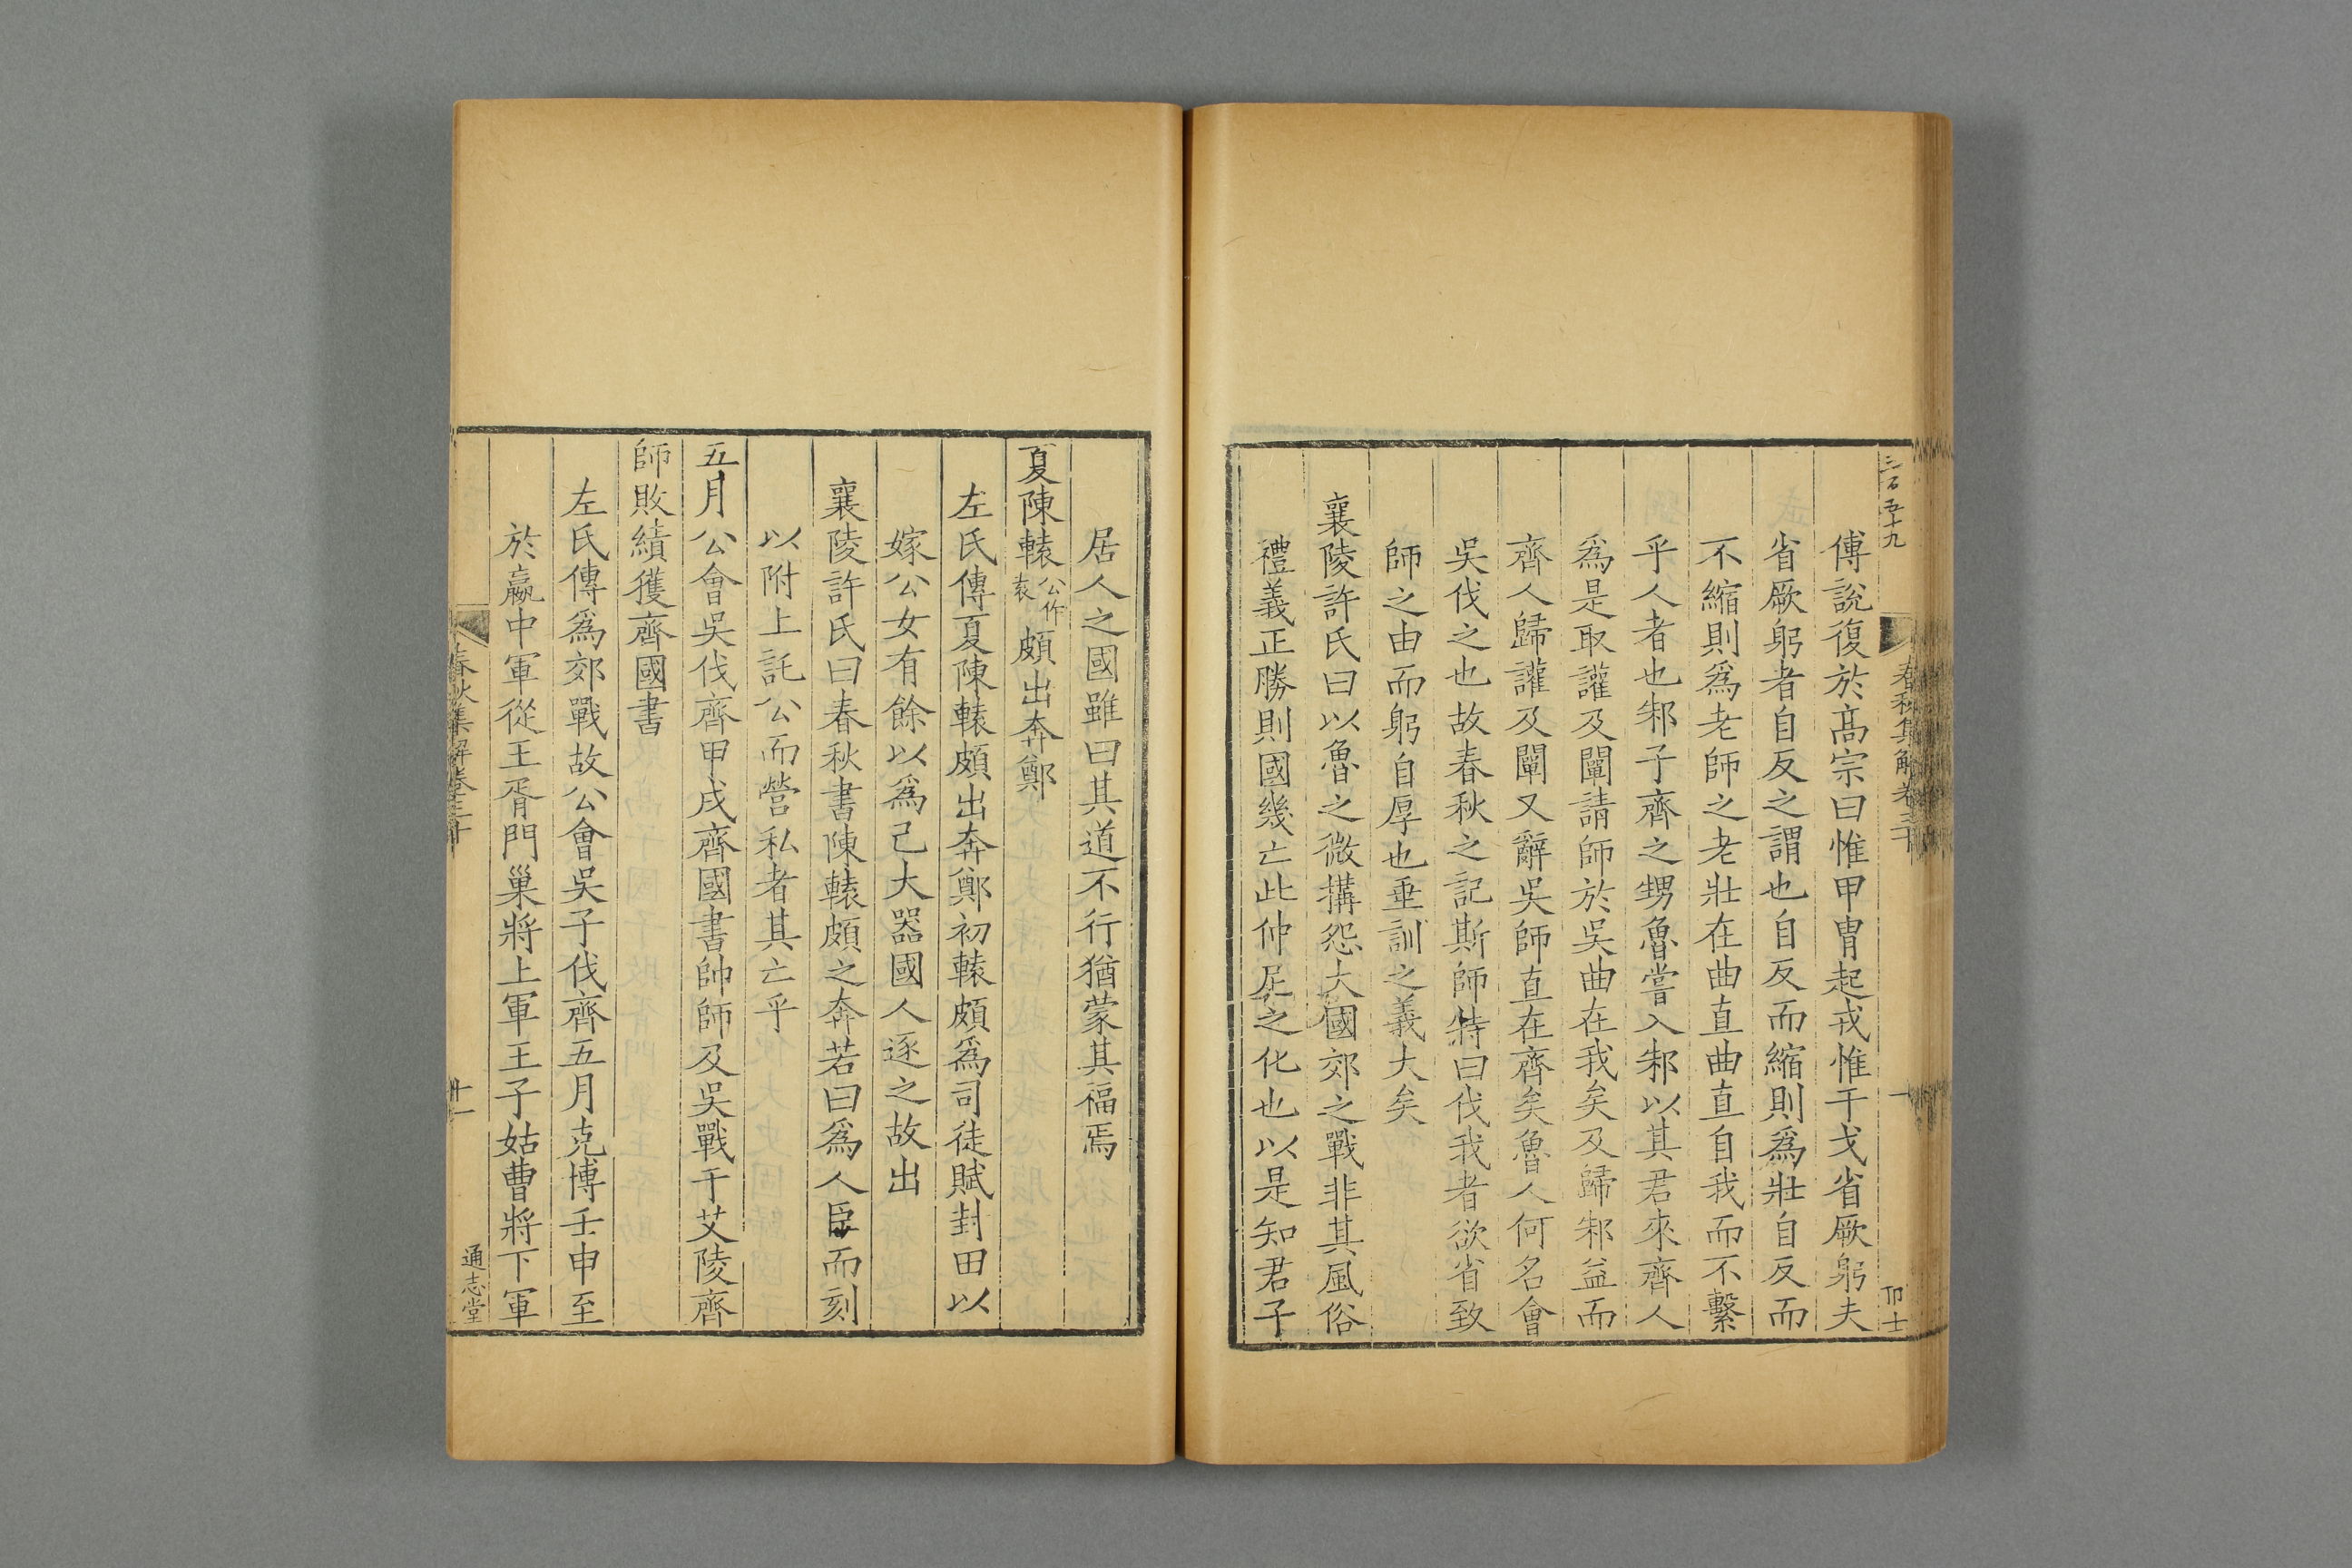 三百五十九
春秋集解卷三十
傅說復於高宗曰惟甲胄起戎惟干戈省厥躬夫
省厥躬者自反之謂也自反而縮則爲壯自反而
不縮則爲老師之老壯在曲直曲直自我而不繫
乎人者也邾子齊之甥魯嘗入邾以其君來齊人
爲是取讙及闡請師於吳曲在我矣及歸邾益而
齊人歸讙及闡又辭吳師直在齊矣魯人何名會
吳伐之也故春秋之記斯師特曰伐我者欲省致
師之由而躬自厚也垂訓之義大矣
襄陵許氏曰以魯之微搆怨大國郊之戰非其風俗
禮義正勝則國幾亡此仲尼之化也以是知君子
居人之國雖曰其道不行猶蒙其福焉
夏陳轅公作袁頗出奔鄭
左氏傳夏陳轅頗出奔鄭初轅頗爲司徒賦封田以
嫁公女有餘以爲己大器國人逐之故出
襄陵許氏曰春秋書陳轅頗之奔若曰爲人臣而刻
以附上託公而營私者其亡乎
五月公會吳伐齊甲戌齊國書帥師及吳戰于艾陵齊
師敗績獲齊國書
左氏傳爲郊戰故公會吳子伐齊五月克博壬申至
於嬴中軍從王胥門巢將上軍王子姑曹將下軍
春秋集解卷三十
廿一
通志堂